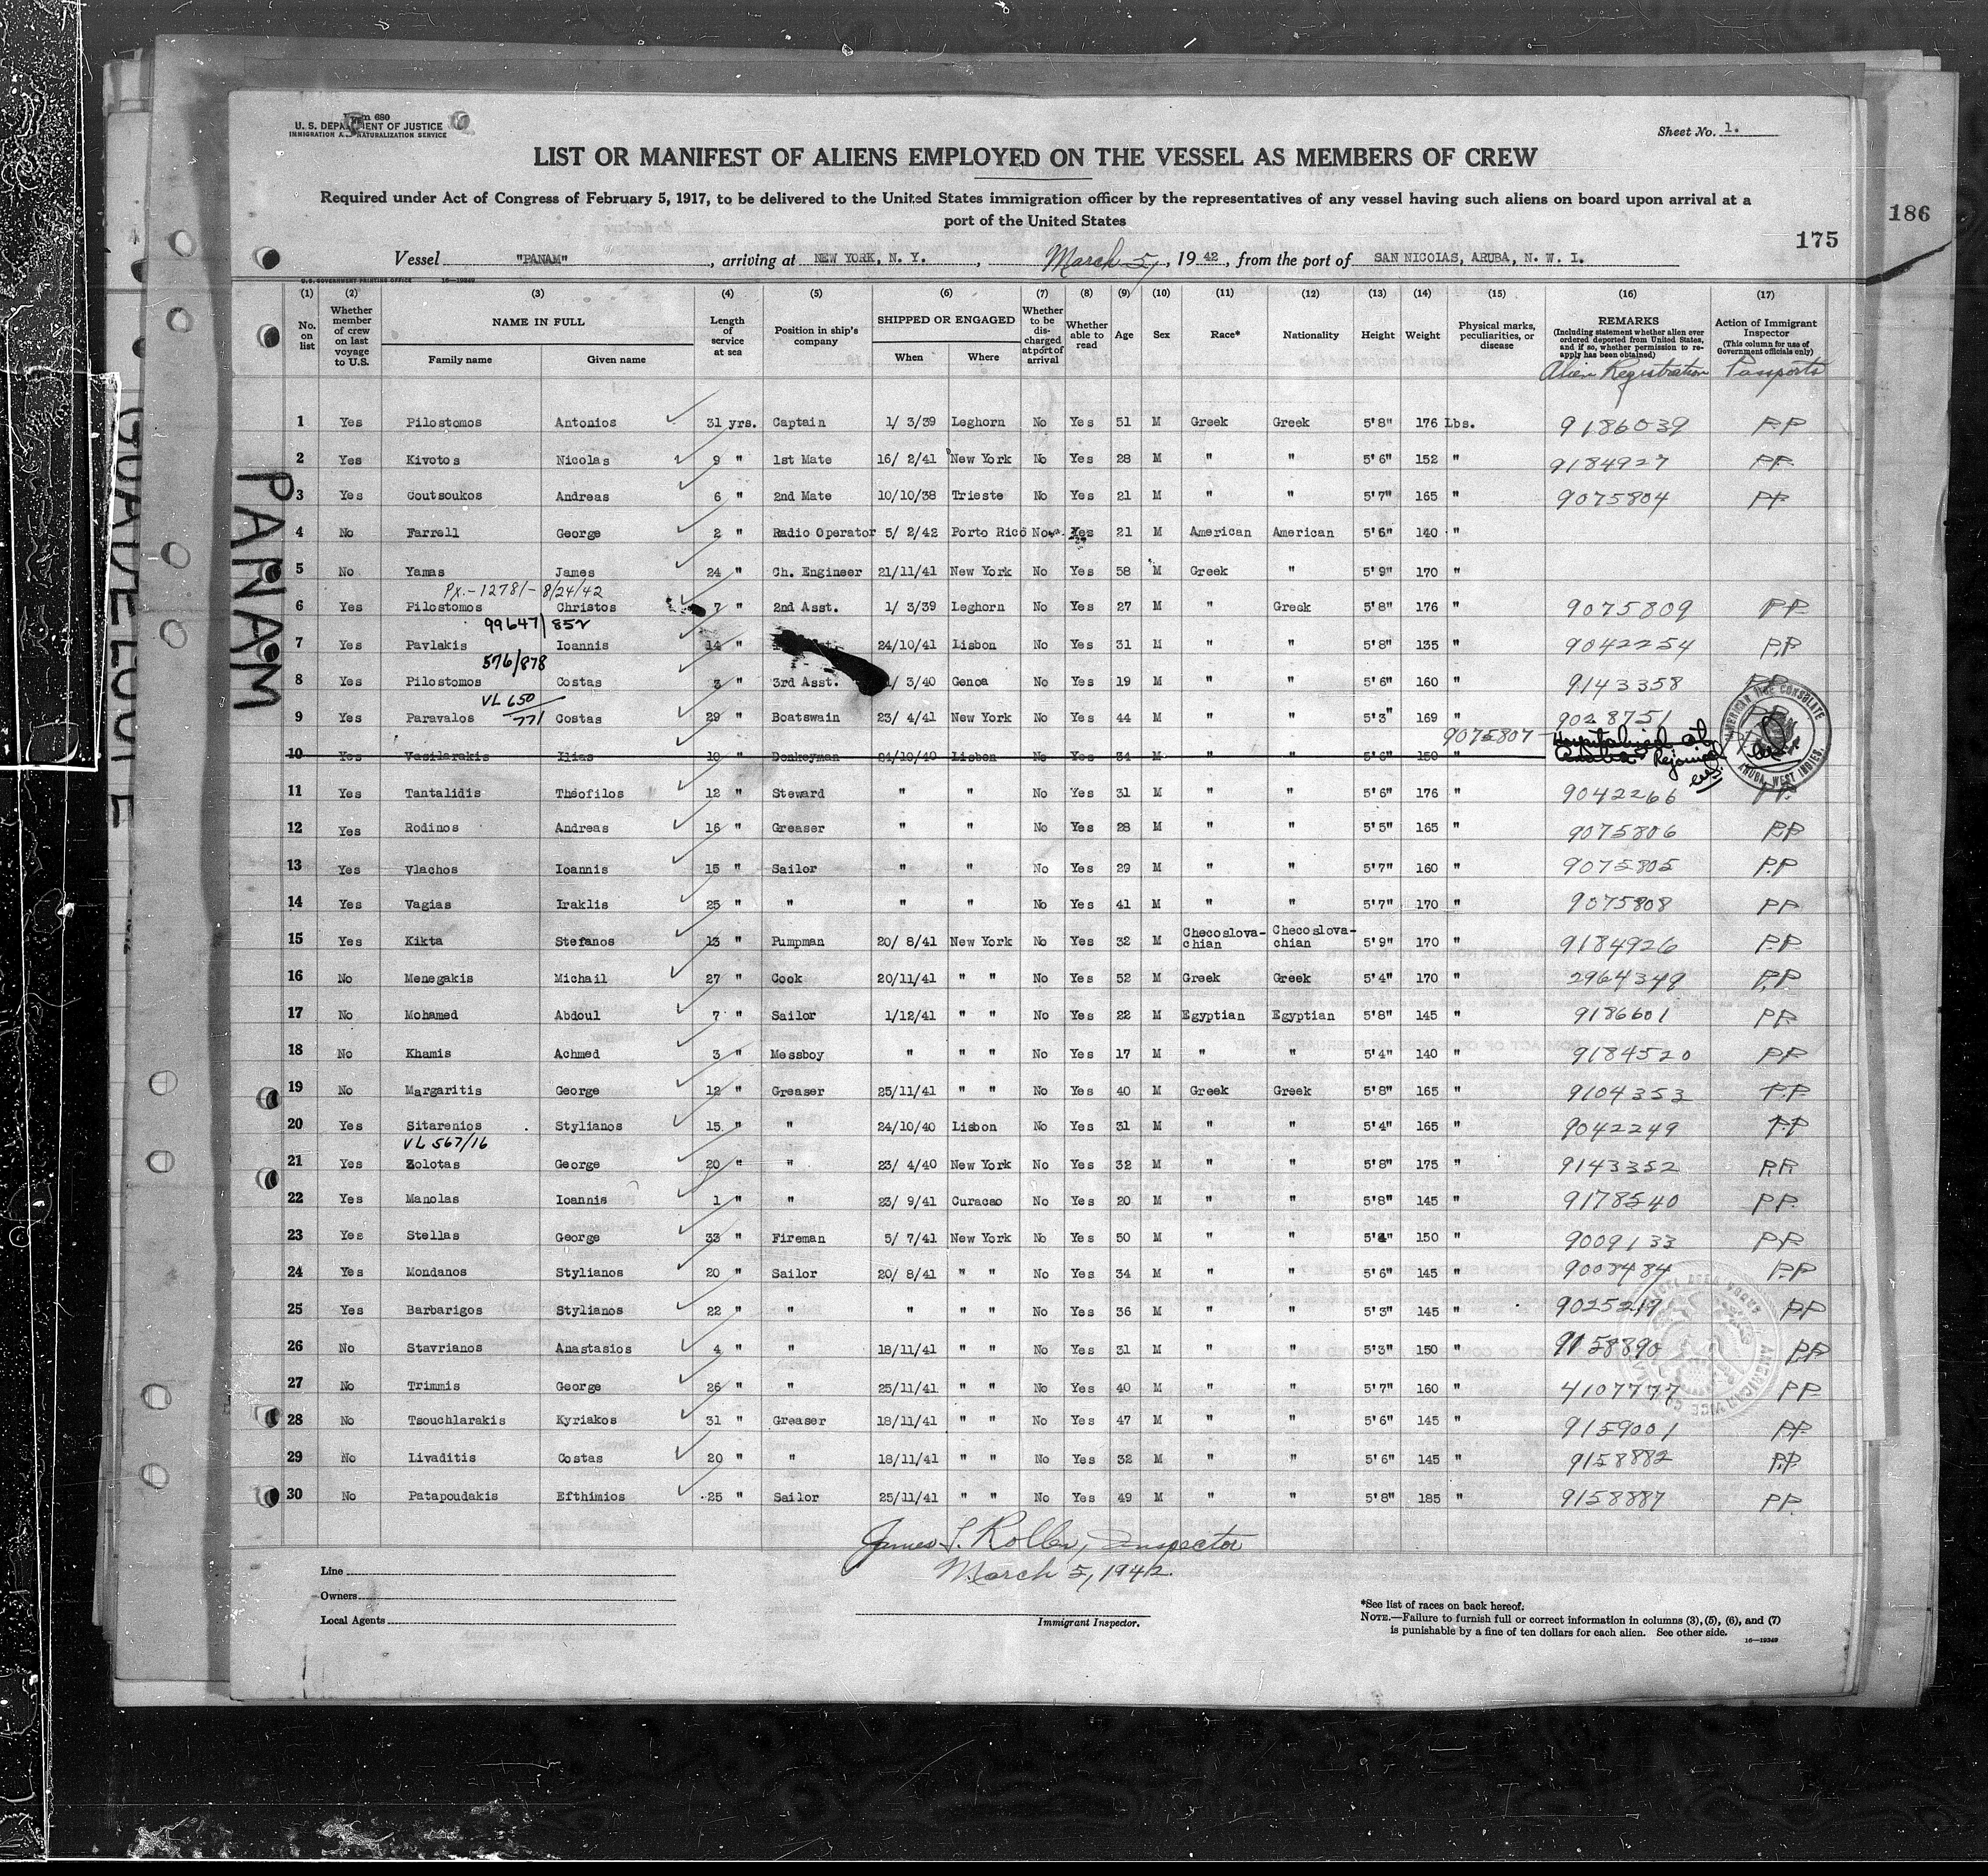 Form 680
U. S. DEPARTMENT OF JUSTICE
IMMIGRATION AND NATURALIZATION SERVICE
Sheet No. 1.
LIST OR MANIFEST OF ALIENS EMPLOYED ON THE VESSEL AS MEMBERS OF CREW
Required under Act of Congress of February 5, 1917, to be delivered to the United States immigration officer by the representatives of any vessel having such aliens on board upon arrival at a
port of the United States
186
175
Vessel "PANAM", arriving at NEW YORK, N. Y., March 5, 1942, from the port of SAN NICOIAS, ARUBA, N. W. I.
U. S. GOVERNMENT PRINTING OFFICE 16—19349
(1) (2) (3) (4) (5) (6) (7) (8) (9) (10) (11) (12) (13) (14) (15) (16) (17)
No. on list
Whether member of crew on last voyage to U.S.
NAME IN FULL
Family name
Given name
Length of service at sea
Position in ship's company
SHIPPED OR ENGAGED
When
Where
Whether to be discharged at port of arrival
Whether able to read
Age
Sex
Race*
Nationality
Height
Weight
Physical marks, peculiarities, or disease
REMARKS
(Including statement whether alien ever ordered deported from United States, and if so, whether permission to reapply has been obtained)
Action of Immigrant Inspector
(This column for use of Government officials only)
Alien Registration Passports
1 Yes Pilostomos Antonios 31 yrs. Captain 1/ 3/39 Leghorn No Yes 51 M Greek Greek 5'8" 176 Lbs. 9186039 P.P
2 Yes Kivotos Nicolas 9 " 1st Mate 16/ 2/41 New York No Yes 28 M " " 5'6" 152 " 9184927 P.P.
3 Yes Coutsoukos Andreas 6 " 2nd Mate 10/10/38 Trieste No Yes 21 M " " 5'7" 165 " 9075804 P.P.
4 No Farrell George 2 " Radio Operator 5/ 2/42 Porto Rico No Yes 21 M American American 5'6" 140 "
5 No Yamas James 24 " Ch. Engineer 21/11/41 New York No Yes 58 M Greek " 5'9" 170 "
PX.-12781-8/24/42
6 Yes Pilostomos Christos 7 " 2nd Asst. 1/ 3/39 Leghorn No Yes 27 M " Greek 5'8" 176 " 9075809 P.P.
99647/852
7 Yes Pavlakis Ioannis 14 " 24/10/41 Lisbon No Yes 31 M " " 5'8" 135 " 9042254 P.P
576/878
8 Yes Pilostomos Costas 3 " 3rd Asst. 1/ 3/40 Genoa No Yes 19 M " " 5'6" 160 " 9143358 P.P.
VL 650/771
9 Yes Paravalos Costas 29 " Boatswain 23/ 4/41 New York No Yes 44 M " " 5'3" 169 " 9028751 P.P.
9075807
10 Yes Vasilarakis Ilias 18 " Donkeyman 24/10/40 Lisbon No Yes 34 M " " 5'6" 150 " Hospitalized at Aruba Rejoined
AMERICAN VICE CONSULATE
ARUBA, WEST INDIES.
11 Yes Tantalidis Theofilos 12 " Steward " " No Yes 31 M " " 5'6" 176 " 9042266 P.P.
12 Yes Rodinos Andreas 16 " Greaser " " No Yes 28 M " " 5'5" 165 " 9075806 P.P
13 Yes Vlachos Ioannis 15 " Sailor " " No Yes 29 M " " 5'7" 160 " 9075805 P.P
14 Yes Vagias Iraklis 25 " " " " No Yes 41 M " " 5'7" 170 " 9075808 P.P.
15 Yes Kikta Stefanos 13 " Pumpman 20/ 8/41 New York No Yes 32 M Checoslova-chian Checoslova-chian 5'9" 170 " 9184926 P.P
16 No Menegakis Michail 27 " Cook 20/11/41 " " No Yes 52 M Greek Greek 5'4" 170 " 2964349 P.P
17 No Mohamed Abdoul 7 " Sailor 1/12/41 " " No Yes 22 M Egyptian Egyptian 5'8" 145 " 9186601 P.P.
18 No Khamis Achmed 3 " Messboy " " " No Yes 17 M " " 5'4" 140 " 9184520 P.P
19 No Margaritis George 12 " Greaser 25/11/41 " " No Yes 40 M Greek Greek 5'8" 165 " 9104353 P.P.
20 Yes Sitarenios Stylianos 15 " " 24/10/40 Lisbon No Yes 31 M " " 5'4" 165 " 9042249 P.P
VL 567/16
21 Yes Zolotas George 20 " " 23/ 4/40 New York No Yes 32 M " " 5'8" 175 " 9143352 P.P.
22 Yes Manolas Ioannis 1 " " 23/ 9/41 Curacao No Yes 20 M " " 5'8" 145 " 9178540 P.P.
23 Yes Stellas George 33 " Fireman 5/ 7/41 New York No Yes 50 M " " 5'4" 150 " 9009133 P.P.
24 Yes Mondanos Stylianos 20 " Sailor 20/ 8/41 " " No Yes 34 M " " 5'6" 145 " 9008484 P.P
25 Yes Barbarigos Stylianos 22 " " " " " No Yes 36 M " " 5'3" 145 " 9025219 P.P
26 No Stavrianos Anastasios 4 " " 18/11/41 " " No Yes 31 M " " 5'3" 150 " 9158890 P.P
27 No Trimmis George 26 " " 25/11/41 " " No Yes 40 M " " 5'7" 160 " 4107777 P.P
28 No Tsouchlarakis Kyriakos 31 " Greaser 18/11/41 " " No Yes 47 M " " 5'6" 145 " 9159001 P.P.
29 No Livaditis Costas 20 " " 18/11/41 " " No Yes 32 M " " 5'6" 145 " 9158882 P.P
30 No Patapoudakis Efthimios 25 " Sailor 25/11/41 " " No Yes 49 M " " 5'8" 185 " 9158887 P.P.
PANAM
James Roller, Inspector
March 5, 1942
Line
Owners
Local Agents
Immigrant Inspector.
*See list of races on back hereof.
NOTE.—Failure to furnish full or correct information in columns (3), (5), (6), and (7)
is punishable by a fine of ten dollars for each alien. See other side.
16—19349